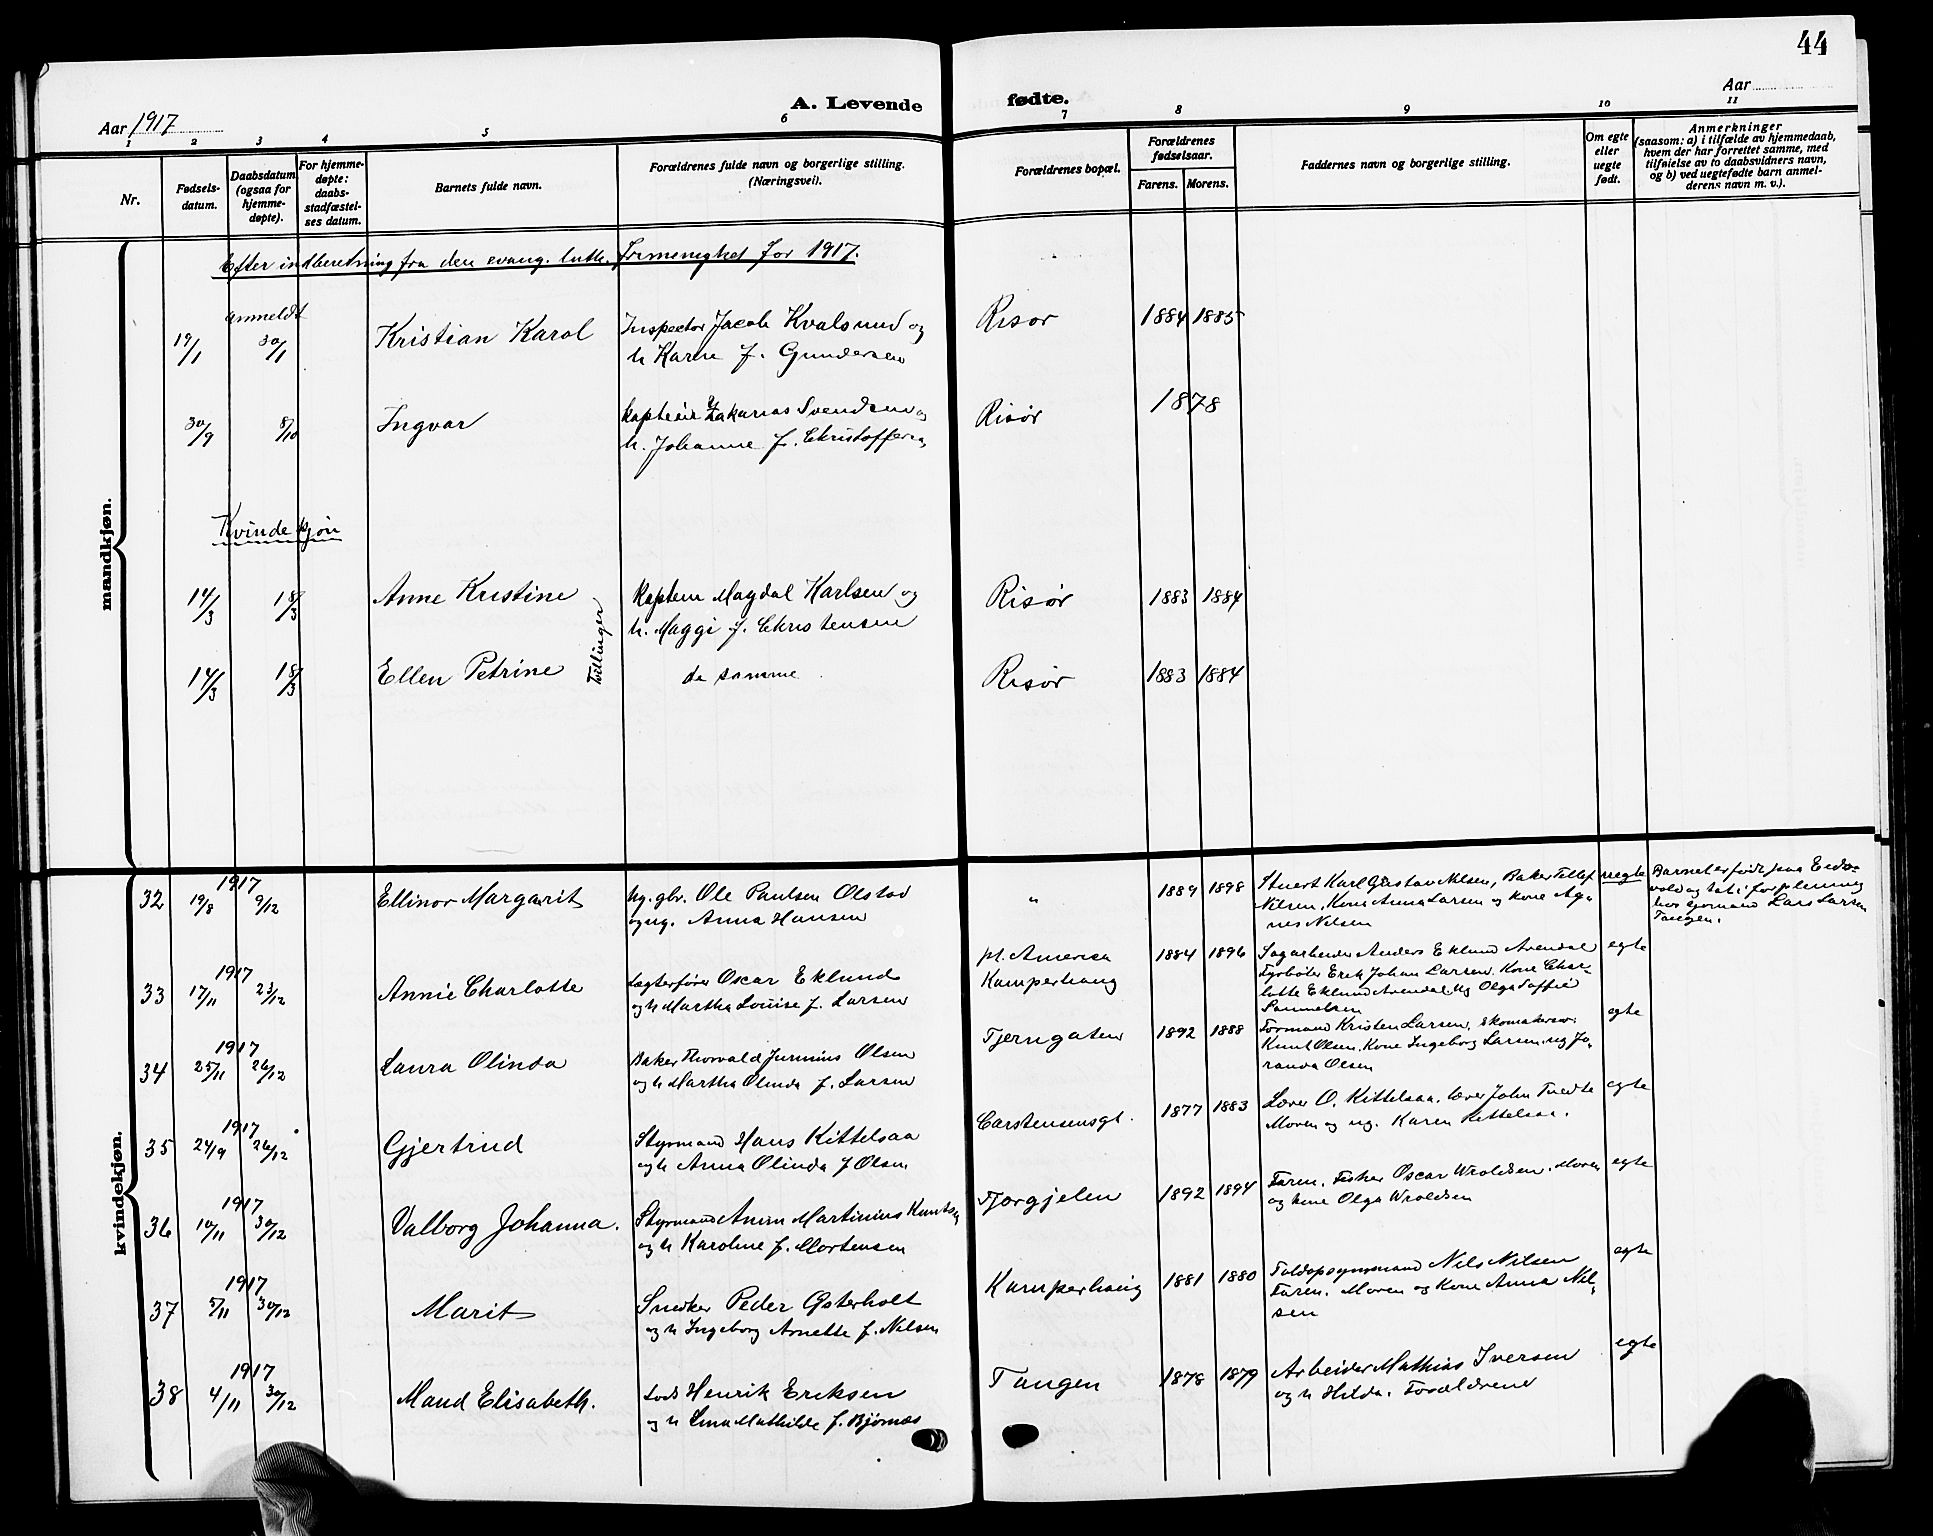 44
Aar 1917
A. Levende fødte.
Aar
1 2 3 4 5 6 7 8 9 10 11
Nr.
Fødsels-
datum.
Daabsdatum
(ogsaa for
hjemme-
døpte).
For hjemme-
døpte:
daabs-
stadfæstel-
ses datum.
Barnets fulde navn.
Forældrenes fulde navn og borgerlige stilling.
(Næringsvei).
Forældrenes bopæl.
Forældrenes
fødselsaar.
Farens. Morens.
Faddernes navn og borgerlige stilling.
Om egte
eller
uegte
født.
Anmerkninger
(saasom: a) i tilfælde av hjemmedaab,
hvem der har forrettet samme, med
tilføielse av to daabsvidners navn,
og b) ved uegtefødte barn anmel-
derens navn m. v.).
mandkjøn.
Efter indberetning fra den evang. luth. frimenighet for 1917.
anmeldt
19/1 30/1 Kristian Karol
Inspector Jacob Kvalsund og
h Karen f. Gundersen
Risør 1884 1885
30/9 8/10 Ingvar
Kaptein Zakarias Svendsen og
h. Johanne f. Christoffersen
Risør 1878
Kvindekjøn
14/3 18/3 Anne Kristine
Kaptein Magdal Karlsen og
h. Maggi f. Christensen
Risør 1883 1884
Tvillinger
14/3 18/3 Ellen Petrine
de samme
Risør 1883 1884
kvindekjøn.
1917
32 19/8 9/12 Ellinor Margarit
Ug. gbr. Ole Paulsen Olstad
og ug. Anna Hansen
" 1889 1898
Stuert Karl Gustav Nilsen, Baker Tellef
Nilsen, Kone Anna Larsen og kone Ag-
nes Nilsen
uegte
Barnet er født paa Eids-
vold og sat i forpleining
hos sjømand Lars Larsen
Tangen.
1917
33 17/11 23/12 Annie Charlotte
Lægterfører Oscar Eklund
og h Martha Louise f. Larsen
pt. America
Kamperhaug
1884 1896
Sagarbeider Anders Eklund Arendal
Fyrbøter Erik Johan Larsen. Kone Char-
lotte Eklund Arendal. Ug Olga Soffie
Samuelsen
egte
1917
34 25/11 26/12 Laura Olinda
Baker Thorvald Junnius Olsen
og h Martha Olinda f. Larsen
Tjerngaten 1892 1888
Formand Kristen Larsen, skomaker
Knut Olsen. Kone Ingeborg Larsen. ug Jo-
randa Olsen
egte
1917
35 24/9 26/12 Gjertrud
Styrmand Hans Kittelsaa
og h Anna Olinda f Olsen
Carstensensgt. 1877 1883
Lærer O. Kittelsaa. lærer John Tvedte
Moren og ug. Karen Kittelsaa.
egte
1917
36 10/11 30/12 Valborg Johanna.
Styrmand Anun Martinius Knutsen
og h Karoline f. Mortensen
Tjorgjelen 1892 1894
Faren. Fisker Oscar Wroldsen. Moren
og kone Olga Wroldsen
egte
1917
37 5/11 30/12 Marit
Snedker Peder Østerholt
og h Ingeborg Arnette f. Nilsen
Kamperhaug 1881 1880
Toldopsynsmand Nils Nilsen
Faren. Moren og kone Anna Nil-
sen
egte
1917
38 4/11 30/12 Maud Elisabeth.
Lods Henrik Eriksen
og h Lina Mathilde f. Bjørnæs
Tangen 1878 1879
Arbeider Mathias Iversen
og h Hilda. Forældrene
egte